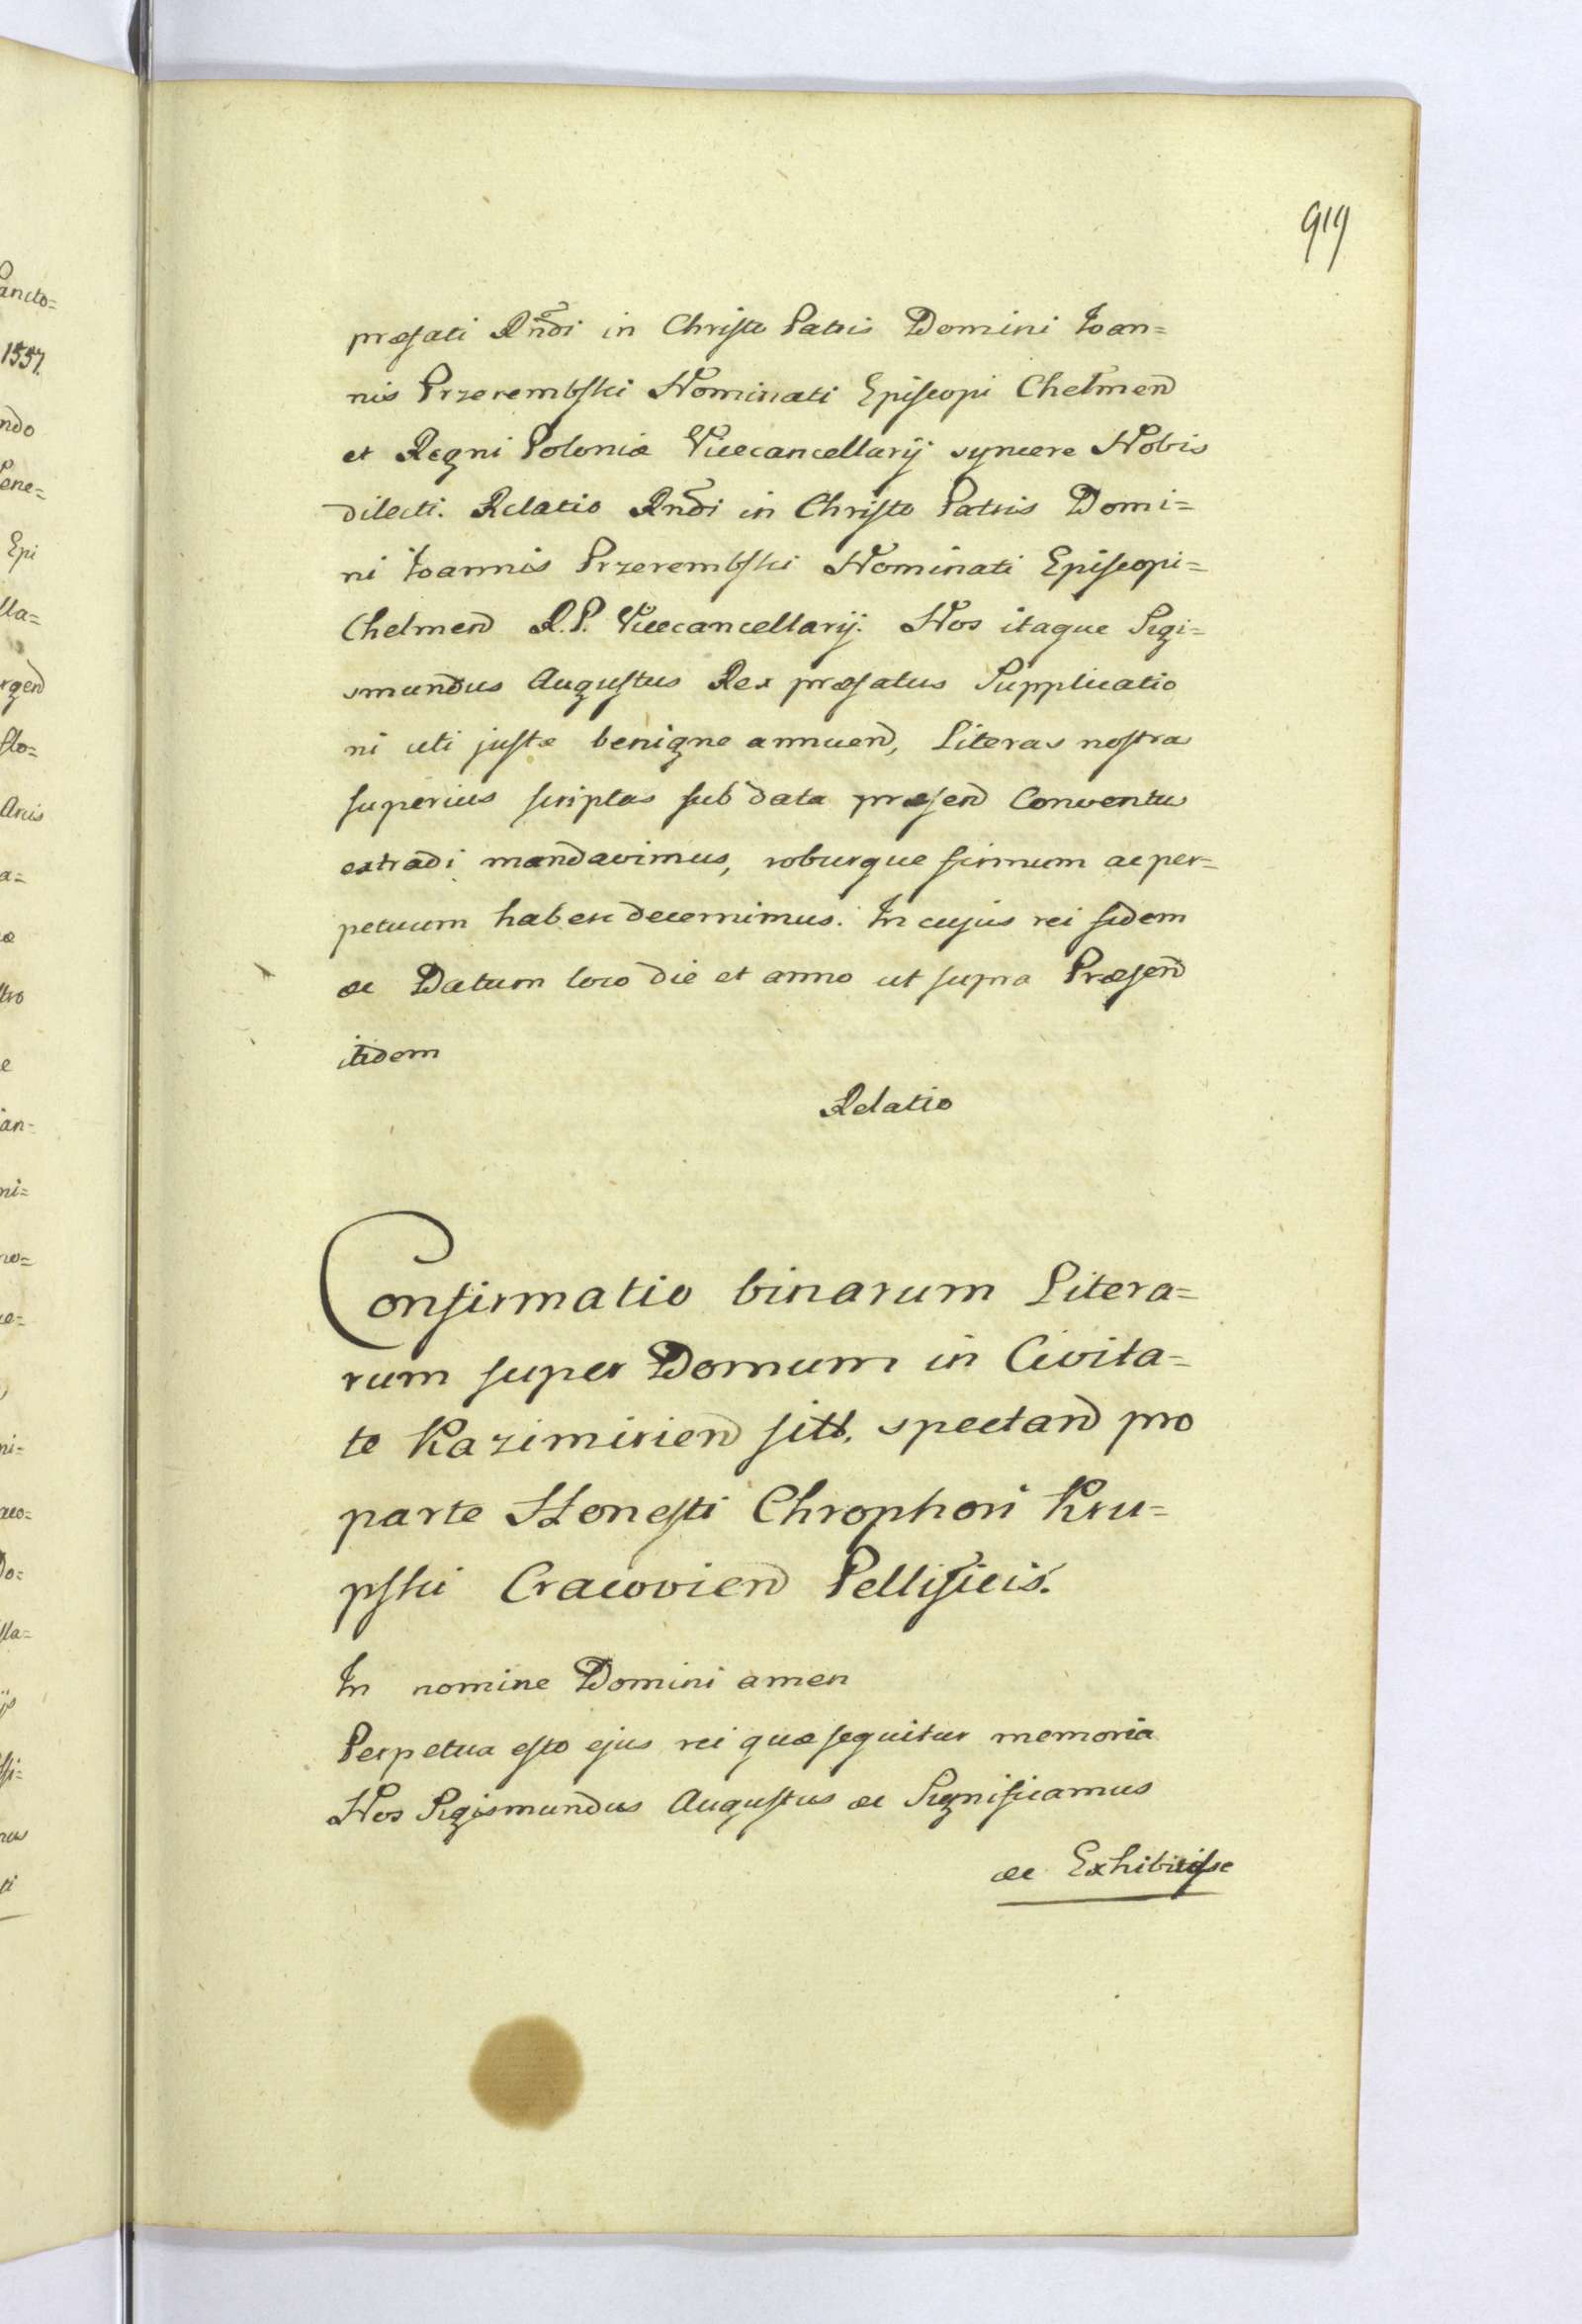 919
præfati Rn̄di in Christo Patris Domini Ioan=
nis Przerembski Nominati Episcopi Chełmen̄
et Regni Poloniæ Vicecancellarij syncere Nobis
dilecti. Relatio Rn̄di in Christo Patris Domi=
ni Ioannis Przerembski Nominati Episcopi=
Chelmen̄ R. P. Vicecancellarij. Nos itaque Sigi=
smundus Augustus Rex præfatus Supplicatio
ni uti justæ benigne annuen̄, Literas nostras
superius scriptas sub data præsen̄ Conventus
extradi mandavimus, roburque firmum ac per=
petuum habere decernimus. In cujus rei fidem
ac Datum loco die et anno ut supra Præsen̄
itidem
Relatio
Confirmatio binarum Litera=
rum super Domum in Civita=
te Kazimirien̄ sitt. spectan̄ pro
parte Honesti Chrophori Kru=
pski Cracovien̄ Pellificis.
In nomine Domini amen
Perpetua esto ejus rei quæ sequitur memoria
Nos Sigismundus Augustus ac Significamus
ac Exhibuisse
ancto=
1557.
ndo
Epi
lla=
rgen̄
slo=
a=
æ
e
an=
ni=
ni=